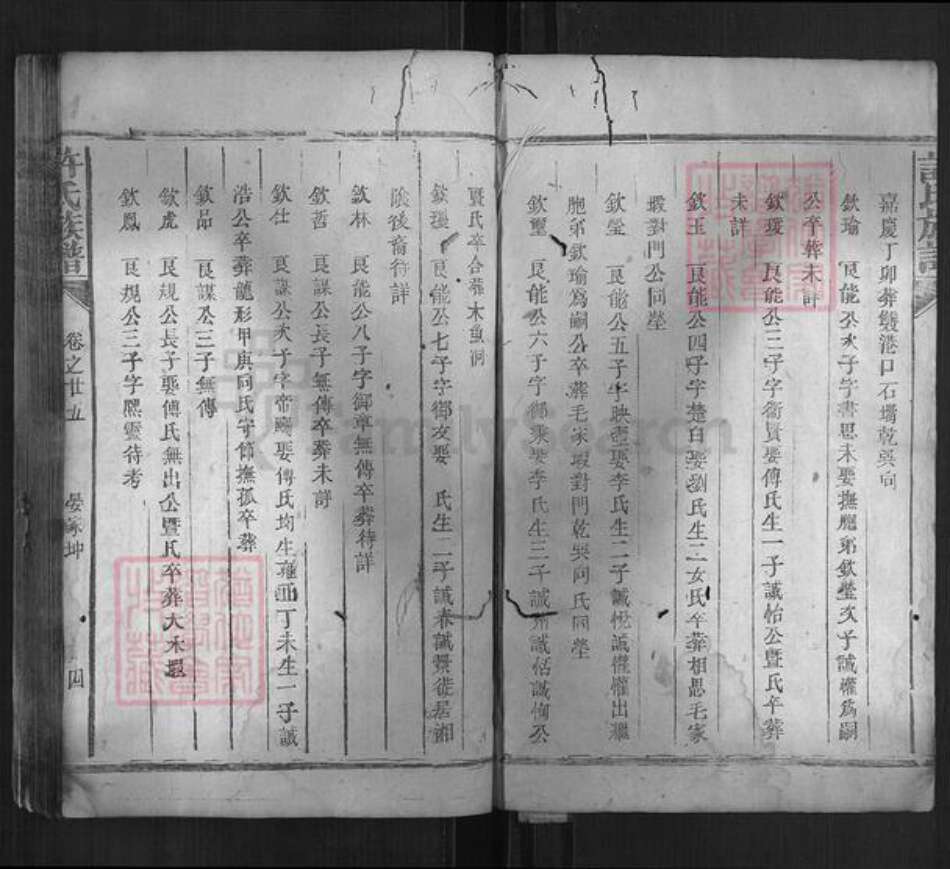 嘉慶丁卯葬雙港口石壩乾巽向
欽瑜 良能公次子字書思未娶撫胞弟欽瑩次子誠權為嗣
公卒葬未詳
欽璦 良能公三子字衛賢娶傅氏生一子誠怡公暨氏卒葬
未詳
欽玉 良能公四子字楚白娶劉氏生二女氏卒葬相思毛家
塅對門公同塋
欽瑩 良能公五子字映壺娶李氏生二子誠悅誠權權出繼
胞弟欽瑜為嗣公卒葬毛家塅對門乾巽向氏同塋
欽璽 良能公六子字御乘娶李氏生三子誠州誠估誠恂公
暨氏卒合葬木魚洞
欽瓊 良能公七子字御友娶 氏生二子誠春誠馨徙居湘
陰後裔待詳
欽林 良能公八子字御章無傳卒葬待詳
欽哲 良謀公長子無傳卒葬未詳
欽仕 良謀公次子字帝疇娶傅氏均生 丁未生一子誠
浩公卒葬龍形甲庚向氏守節撫孤卒葬
欽品 良謀公三子無傳
欽虎 良規公長子娶傅氏無出公暨氏卒葬大禾塅
欽鳳 良規公三子字 靈待考
許氏族譜
卷之廿五
晏家坤
四
許氏族譜
FamilySearch